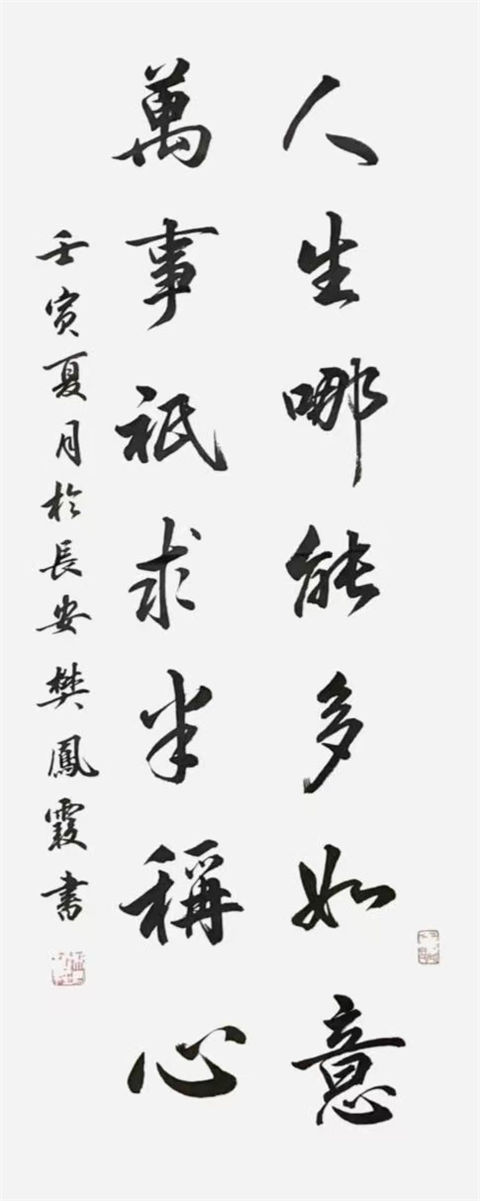 人生哪能多如意
萬事祇求半稱心
壬寅夏月於長安樊鳳霞书